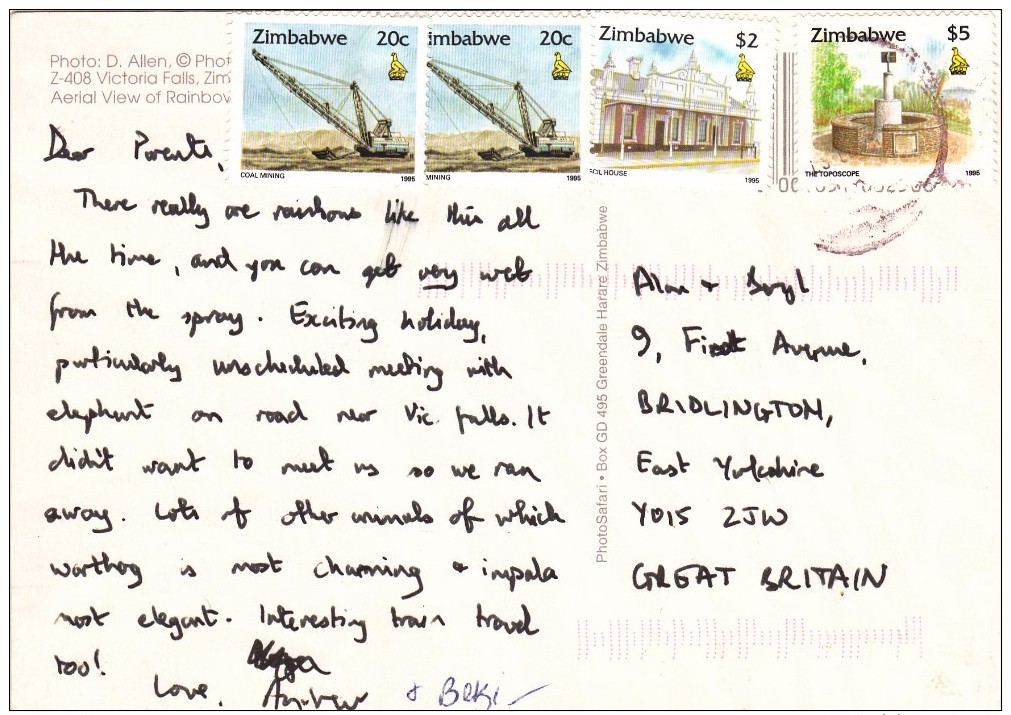 Photo: D. Allen, © Phot
Z-408 Victoria Falls, Zim
Aerial View of Rainbow
Zimbabwe 20c
COAL MINING 1995
imbabwe 20c
MINING 1995
Zimbabwe $2
CIL HOUSE 1995
Zimbabwe $5
THE TOPOSCOPE 1995
Dear Parents,
There really are rainbows like this all
the time, and you can get very wet
from the spray. Exciting holiday,
particularly unscheduled meeting with
elephant on road near Vic. falls. It
didn't want to meet us so we ran
away. Lots of other animals of which
warthog is most charming & impala
most elegant. Interesting train travel
too!
Love, Andrew & Beki
PhotoSafari • Box GD 495 Greendale Harare Zimbabwe
Alan + Beryl
9, First Avenue,
BRIDLINGTON,
East Yorkshire
YO15 2JW
GREAT BRITAIN